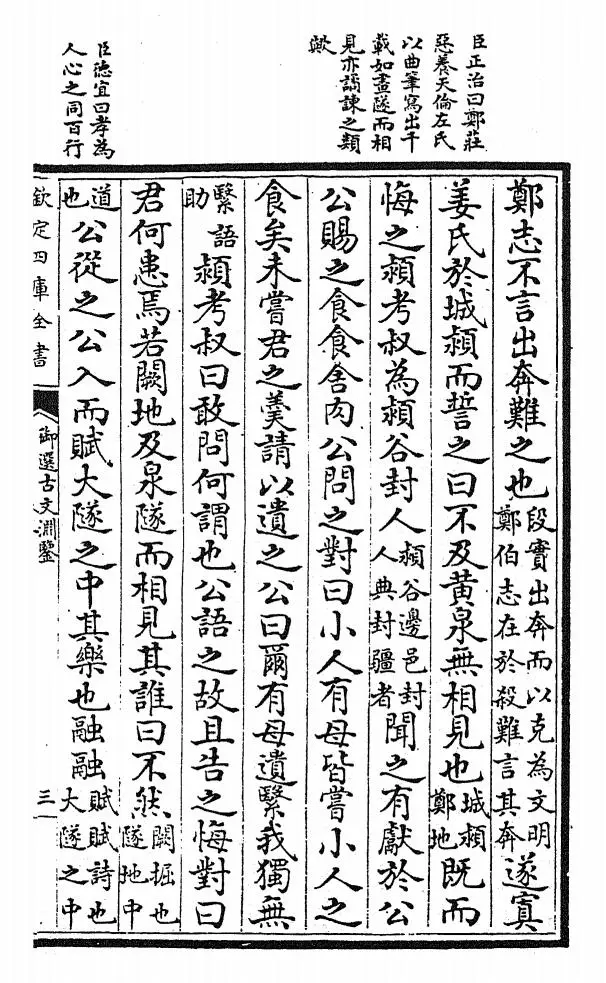 臣正治曰鄭莊
惡養天倫左氏
以曲筆寫出千
載如畫隧而相
見亦譎諫之類
歟
臣德宜曰孝為
人心之同百行
鄭志不言出奔難之也段實出奔而以克為文明鄭伯志在於殺難言其奔遂寘
姜氏於城潁而誓之曰不及黃泉無相見也城潁鄭地既而
悔之潁考叔為潁谷封人潁谷邊邑封人典封疆者聞之有獻於公
公賜之食食舍肉公問之對曰小人有母皆嘗小人之
食矣未嘗君之羹請以遺之公曰爾有母遺繄我獨無
繄語助潁考叔曰敢問何謂也公語之故且告之悔對曰
君何患焉若闕地及泉隧而相見其誰曰不然闕掘也隧地中
道也公從之公入而賦大隧之中其樂也融融賦賦詩也大隧之中
欽定四庫全書
御選古文淵鑒
三